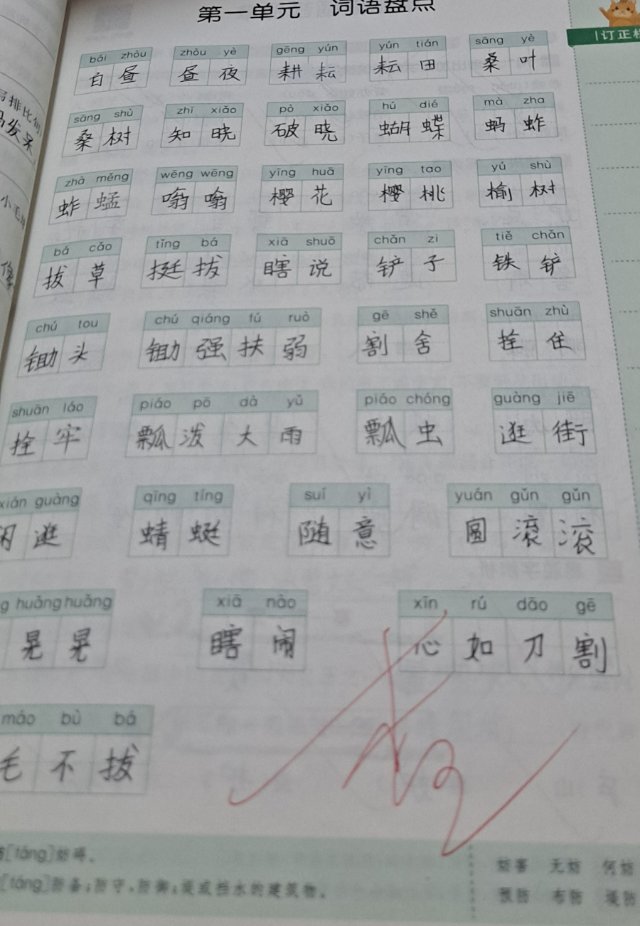 第一单元 词语盘点
订正栏
bái zhòu zhòu yè gēng yún yún tián sāng yè
白昼 昼夜 耕耘 耘田 桑叶
sāng shù zhī xiǎo pò xiǎo hú dié mà zha
桑树 知晓 破晓 蝴蝶 蚂蚱
zhà měng wēng wēng yīng huā yīng tao yú shù
蚱蜢 嗡嗡 樱花 樱桃 榆树
bá cǎo tǐng bá xiā shuō chǎn zi tiě chǎn
拔草 挺拔 瞎说 铲子 铁铲
chú tou chú qiáng fú ruò gē shě shuān zhù
锄头 锄强扶弱 割舍 拴住
shuān láo piáo pō dà yǔ piáo chóng guàng jiē
拴牢 瓢泼大雨 瓢虫 逛街
xián guàng qīng tíng suí yì yuán gǔn gǔn
闲逛 蜻蜓 随意 圆滚滚
huǎng huǎng xiā nào xīn rú dāo gē
晃晃 瞎闹 心如刀割
máo bù bá
毛不拔
[fáng]妨碍。 妨害 无妨 何妨
[fáng]防备;防守,防御;堤或挡水的建筑物。 预防 布防 堤防